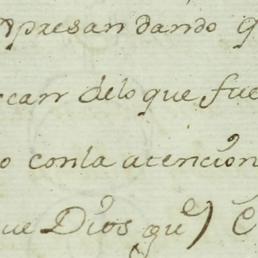 apresan dando q
car delo que fue
o conla atencion
ue Dios qu^e) C